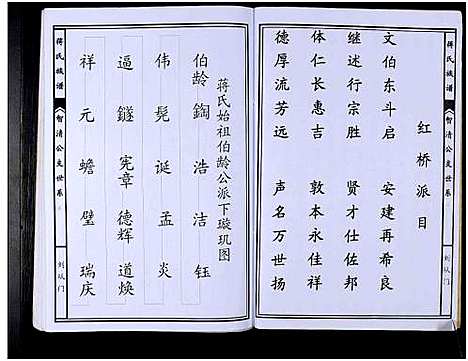 红桥派目
文伯东斗启　安建再希良
继述行宗胜　贤才仕佐邦
体仁长惠吉　敦本永佳祥
德厚流芳远　声名万世扬
蒋氏始祖伯龄公派下璇玑图
伯龄　鋾　浩　洁　钰
伟　髡　诞　孟　炎
逼　鐩　宪章　德辉　道焕
祥　元　蟾　璧　瑞庆
蒋氏族谱
智清公支世系
蒋氏族谱
智清公支世系